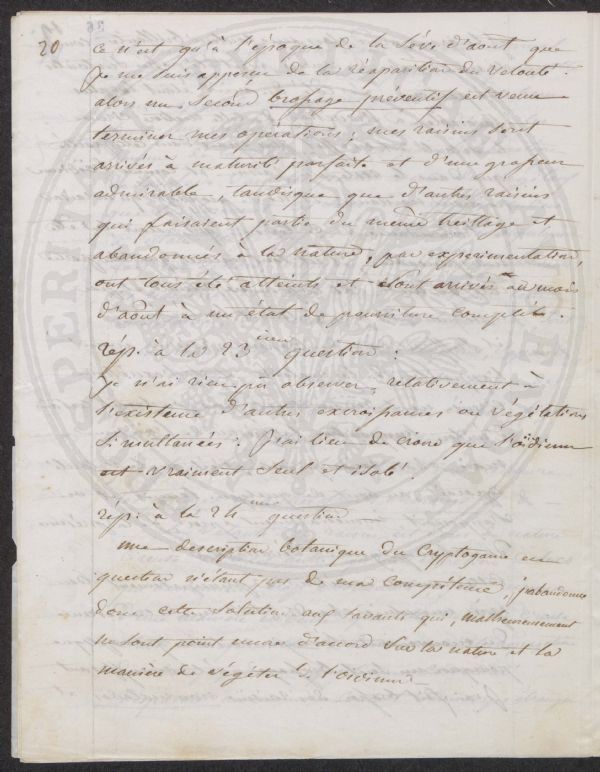 20
ce n'est qu'à l'époque de la sève d'aout que
je me suis apperçu de la réaparition du velouté.
alors un second brossage préventif est venu
terminer mes opérations; mes raisins sont
arrivés à maturité parfaite et d'une grosseur
admirable, tandisque que d'autres raisins
qui faisaient partie du même treillage et
abandonnés à la nature, par experimentation,
ont tous été atteints et sont arrivés au mois
d'août à un état de pourriture complète.
rép. à la 23ieme question:
je n'ai rien pu observer, relativement à
l'existence d'autres excroissances ou végétations
simultanées. J'ai lieu de croire que l'oïdium
est vraiment seul et isolé.
rép. à la 24 question
une description botanique du Cryptogame en
question n'étant pas de ma compétence, j'abandonne
donc cette solution aux savants qui, malheureusement
ne sont point encore d'accord sur la nature et la
manière de végéter de l'oïdium